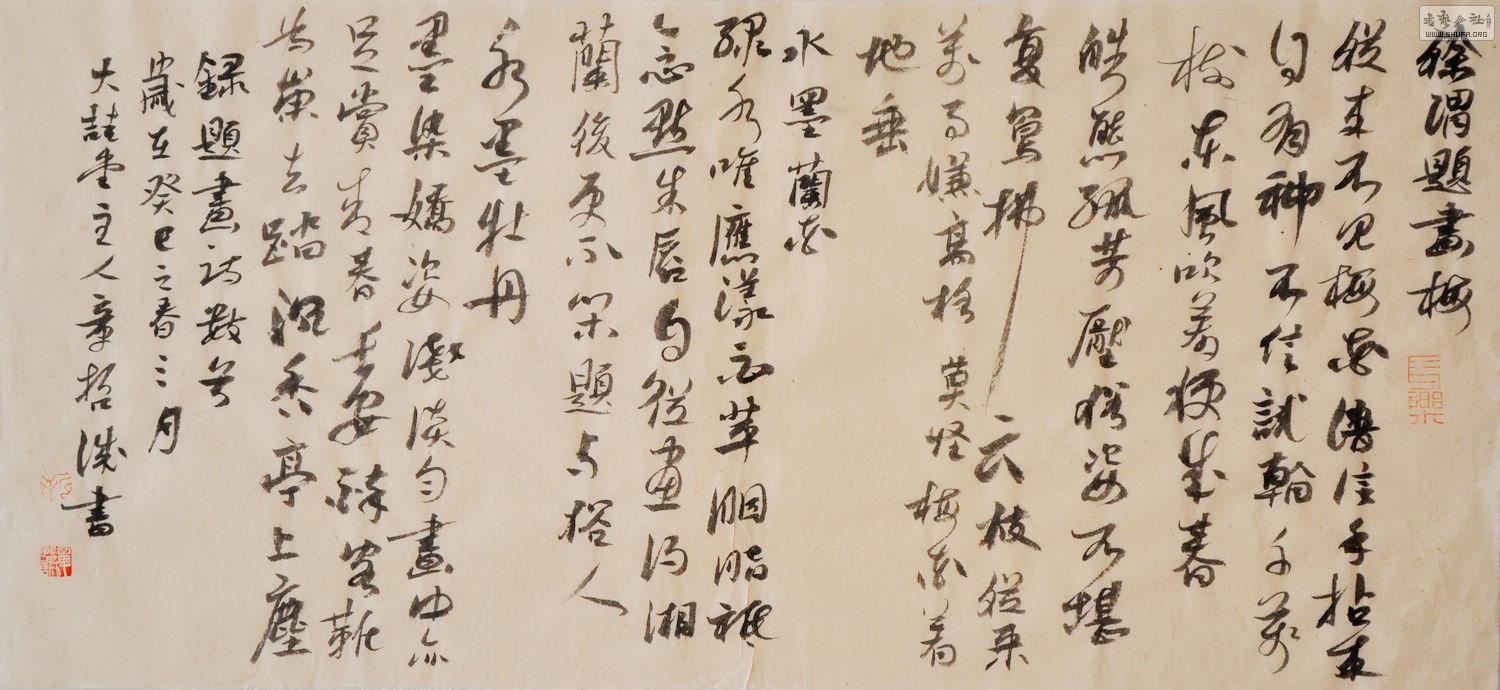 徐渭題畫梅
從來不見梅花譜信手拈來
自有神不信試翰千萬
樹東風吹著便成春
皓態孤芳壓俗姿不堪
復寫拂云枝從來
萬事嫌高格莫怪梅花著
地垂
水墨蘭花
綠水唯應漾白草胭脂袛
念點朱唇自從畫得湘
蘭後更不閑題与俗人
水墨牡丹
墨染嬌姿淺淡勻畫中亦
足賞青春長安醉客靴
為祟去踏沉香亭上塵
録題畫詩數首
歲在癸巳之春三月
大喆堂主人章哲誠書
長樂
WWW.SHUFA.ORG